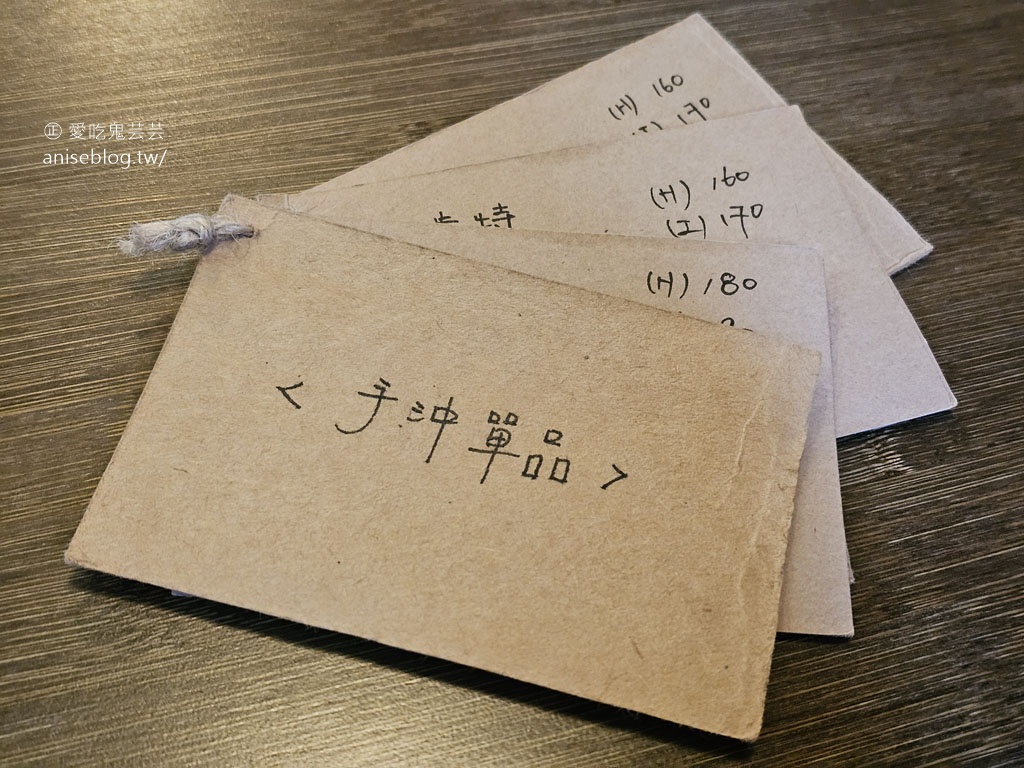 ㊣ 愛吃鬼芸芸
aniseblog.tw/
(H) 160
(I) 170
特
(H) 160
(I) 170
(H) 180
< 手沖單品 >